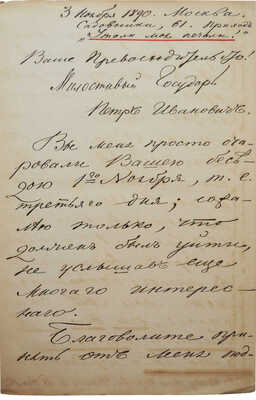 3 Ноября 1890. Москва.
Садовники, 61. Приходъ
„Утоли моя печали".
Ваше Превосходительство!
Милостивый Государь!
Петръ Ивановичъ.
Вы меня просто оча-
ровали Вашею бесѣ-
дою 1го Ноября, т. е.
третьяго дня; сожа-
лѣю только, что
долженъ былъ уйти,
не услышавъ еще
многаго интерес-
наго.
Благоволите при-
нять отъ меня под-